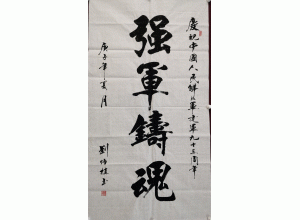 慶祝中國人民解放軍建軍九十三周年
强軍鑄魂
庚子年夏月
劉